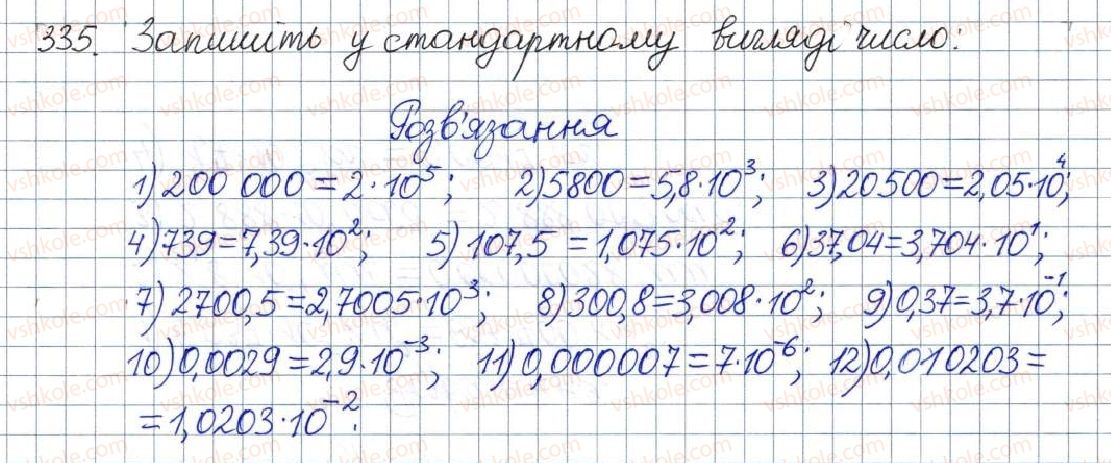 335. Запишіть у стандартному вигляді число:
Розв'язання
1) 200 000 = 2·10⁵; 2) 5800 = 5,8·10³; 3) 20500 = 2,05·10⁴;
4) 739 = 7,39·10²; 5) 107,5 = 1,075·10²; 6) 37,04 = 3,704·10¹;
7) 2700,5 = 2,7005·10³; 8) 300,8 = 3,008·10²; 9) 0,37 = 3,7·10⁻¹;
10) 0,0029 = 2,9·10⁻³; 11) 0,000007 = 7·10⁻⁶; 12) 0,010203 =
= 1,0203·10⁻².